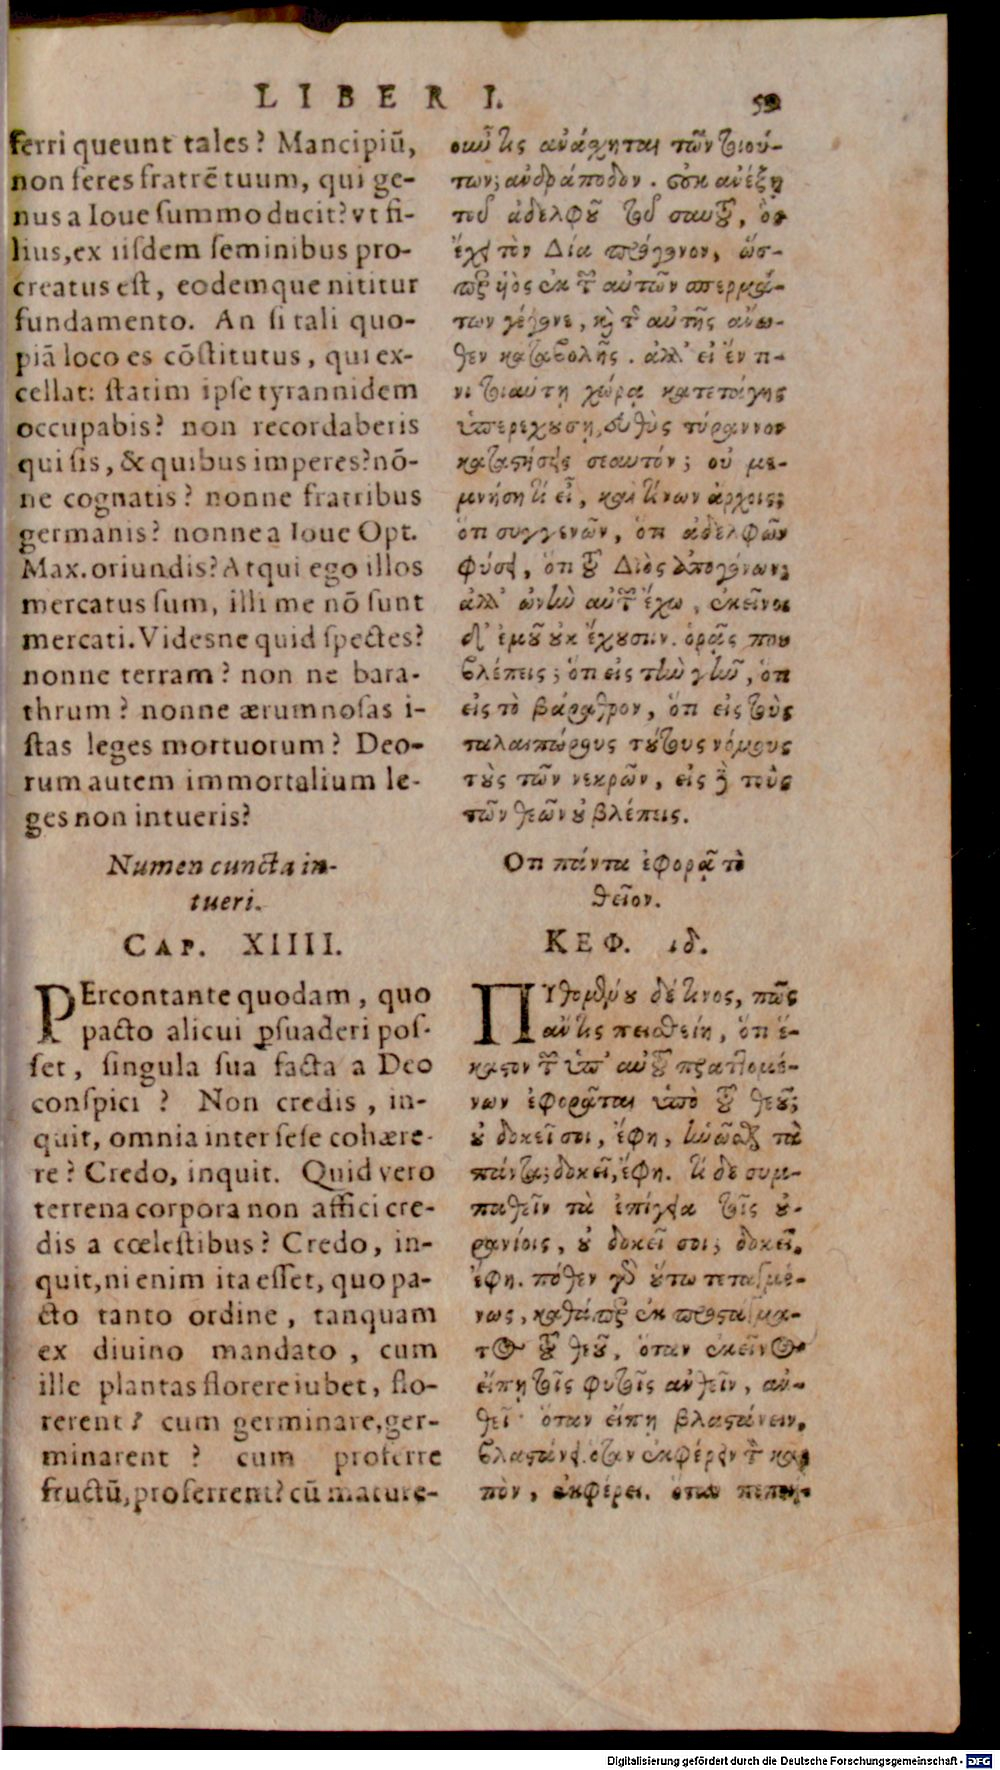 LIBER I. 59
ferri queunt tales? Mancipiũ,
non feres fratrẽ tuum, qui ge-
nus a Ioue summo ducit? vt fi-
lius, ex iisdem seminibus pro-
creatus est, eodemque nititur
fundamento. An si tali quo-
piã loco es cõstitutus, qui ex-
cellat: statim ipse tyrannidem
occupabis? non recordaberis
qui sis, & quibus imperes? nõ-
ne cognatis? nonne fratribus
germanis? nonne a Ioue Opt.
Max. oriundis? Atqui ego illos
mercatus sum, illi me nõ sunt
mercati. Videsne quid spectes?
nonne terram? non ne bara-
thrum? nonne ærumnosas i-
stas leges mortuorum? Deo-
rum autem immortalium le-
ges non intueris?
Numen cuncta in-
tueri.
CAP. XIIII.
PErcontante quodam, quo
pacto alicui ꝑsuaderi pos-
set, singula sua facta a Deo
conspici? Non credis, in-
quit, omnia inter sese cohære-
re? Credo, inquit. Quid vero
terrena corpora non affici cre-
dis a cœlestibus? Credo, in-
quit, ni enim ita esset, quo pa-
cto tanto ordine, tanquam
ex diuino mandato, cum
ille plantas florere iubet, flo-
rerent? cum germinare, ger-
minarent? cum proferre
fructũ, proferrent? cũ mature-
οιωῦ τις ανάχηται τῶν τοιού-
των; ανδράποδον. σὐκ ανέξῃ
τοῦ ἀδελφοῦ τοῦ σαυτοῦ, ὃς
ἔχει τὸν Δία πρόγονον, ὥσ-
περ υἱὸς ἐκ τῶν αὐτῶν σπερμά-
των γέγονε, καὶ τῆς αὐτῆς ανω-
θεν καταβολῆς. ἀλλ' εἰ ἔν τι-
νι τοιαύτῃ χώρᾳ κατετάγης
ὑπερεχούσῃ, εὐθὺς τύραννον
καταστήσεις σεαυτόν; οὐ με-
μνήσῃ τί εἶ, καὶ τίνων ἄρχεις;
ὅτι συγγενῶν, ὅτι ἀδελφῶν
φύσει, ὅτι τοῦ Διὸς ἀπογόνων;
ἀλλ' ὠνὴν αὐτῶν ἔχω, ἐκεῖνοι
δ' ἐμοῦ οὐκ ἔχουσιν. ὁρᾷς που
βλέπεις; ὅτι εἰς τὴν γῆν, ὅτι
εἰς τὸ βάραθρον, ὅτι εἰς τοὺς
ταλαιπώρους τούτους νόμους
τοὺς τῶν νεκρῶν, εἰς δὲ τοὺς
τῶν θεῶν οὐ βλέπεις.
Οτι πάντα ἐφορᾷ τὸ
θεῖον.
ΚΕΦ. ιδ.
ΠΥθομένου δέ τινος, πῶς
αν τις πεισθείη, ὅτι ἕ-
καστον τῶν ὑπ' αὐτοῦ πραττομέ-
νων ἐφορᾶται ὑπὸ τοῦ θεοῦ;
οὐ δοκεῖ σοι, ἔφη, ἡνῶσθαι τὰ
πάντα; δοκεῖ, ἔφη. τί δε συμ-
παθεῖν τὰ ἐπίγεια τοῖς οὐ-
ρανίοις, οὐ δοκεῖ σοι; δοκεῖ,
ἔφη. πόθεν γὰρ οὕτω τεταγμέ-
νως, καθάπερ ἐκ προστάγμα-
τος τοῦ θεοῦ, ὅταν ἐκεῖνος
εἴπῃ τοῖς φυτοῖς ανθεῖν, αν-
θεῖ· ὅταν εἴπῃ βλαστάνειν,
βλαστάνει. ὅταν ἐκφέρειν τὸν καρ
πὸν, ἐκφέρει. ὅταν πεπαί-
Digitalisierung gefördert durch die Deutsche Forschungsgemeinschaft - DFG